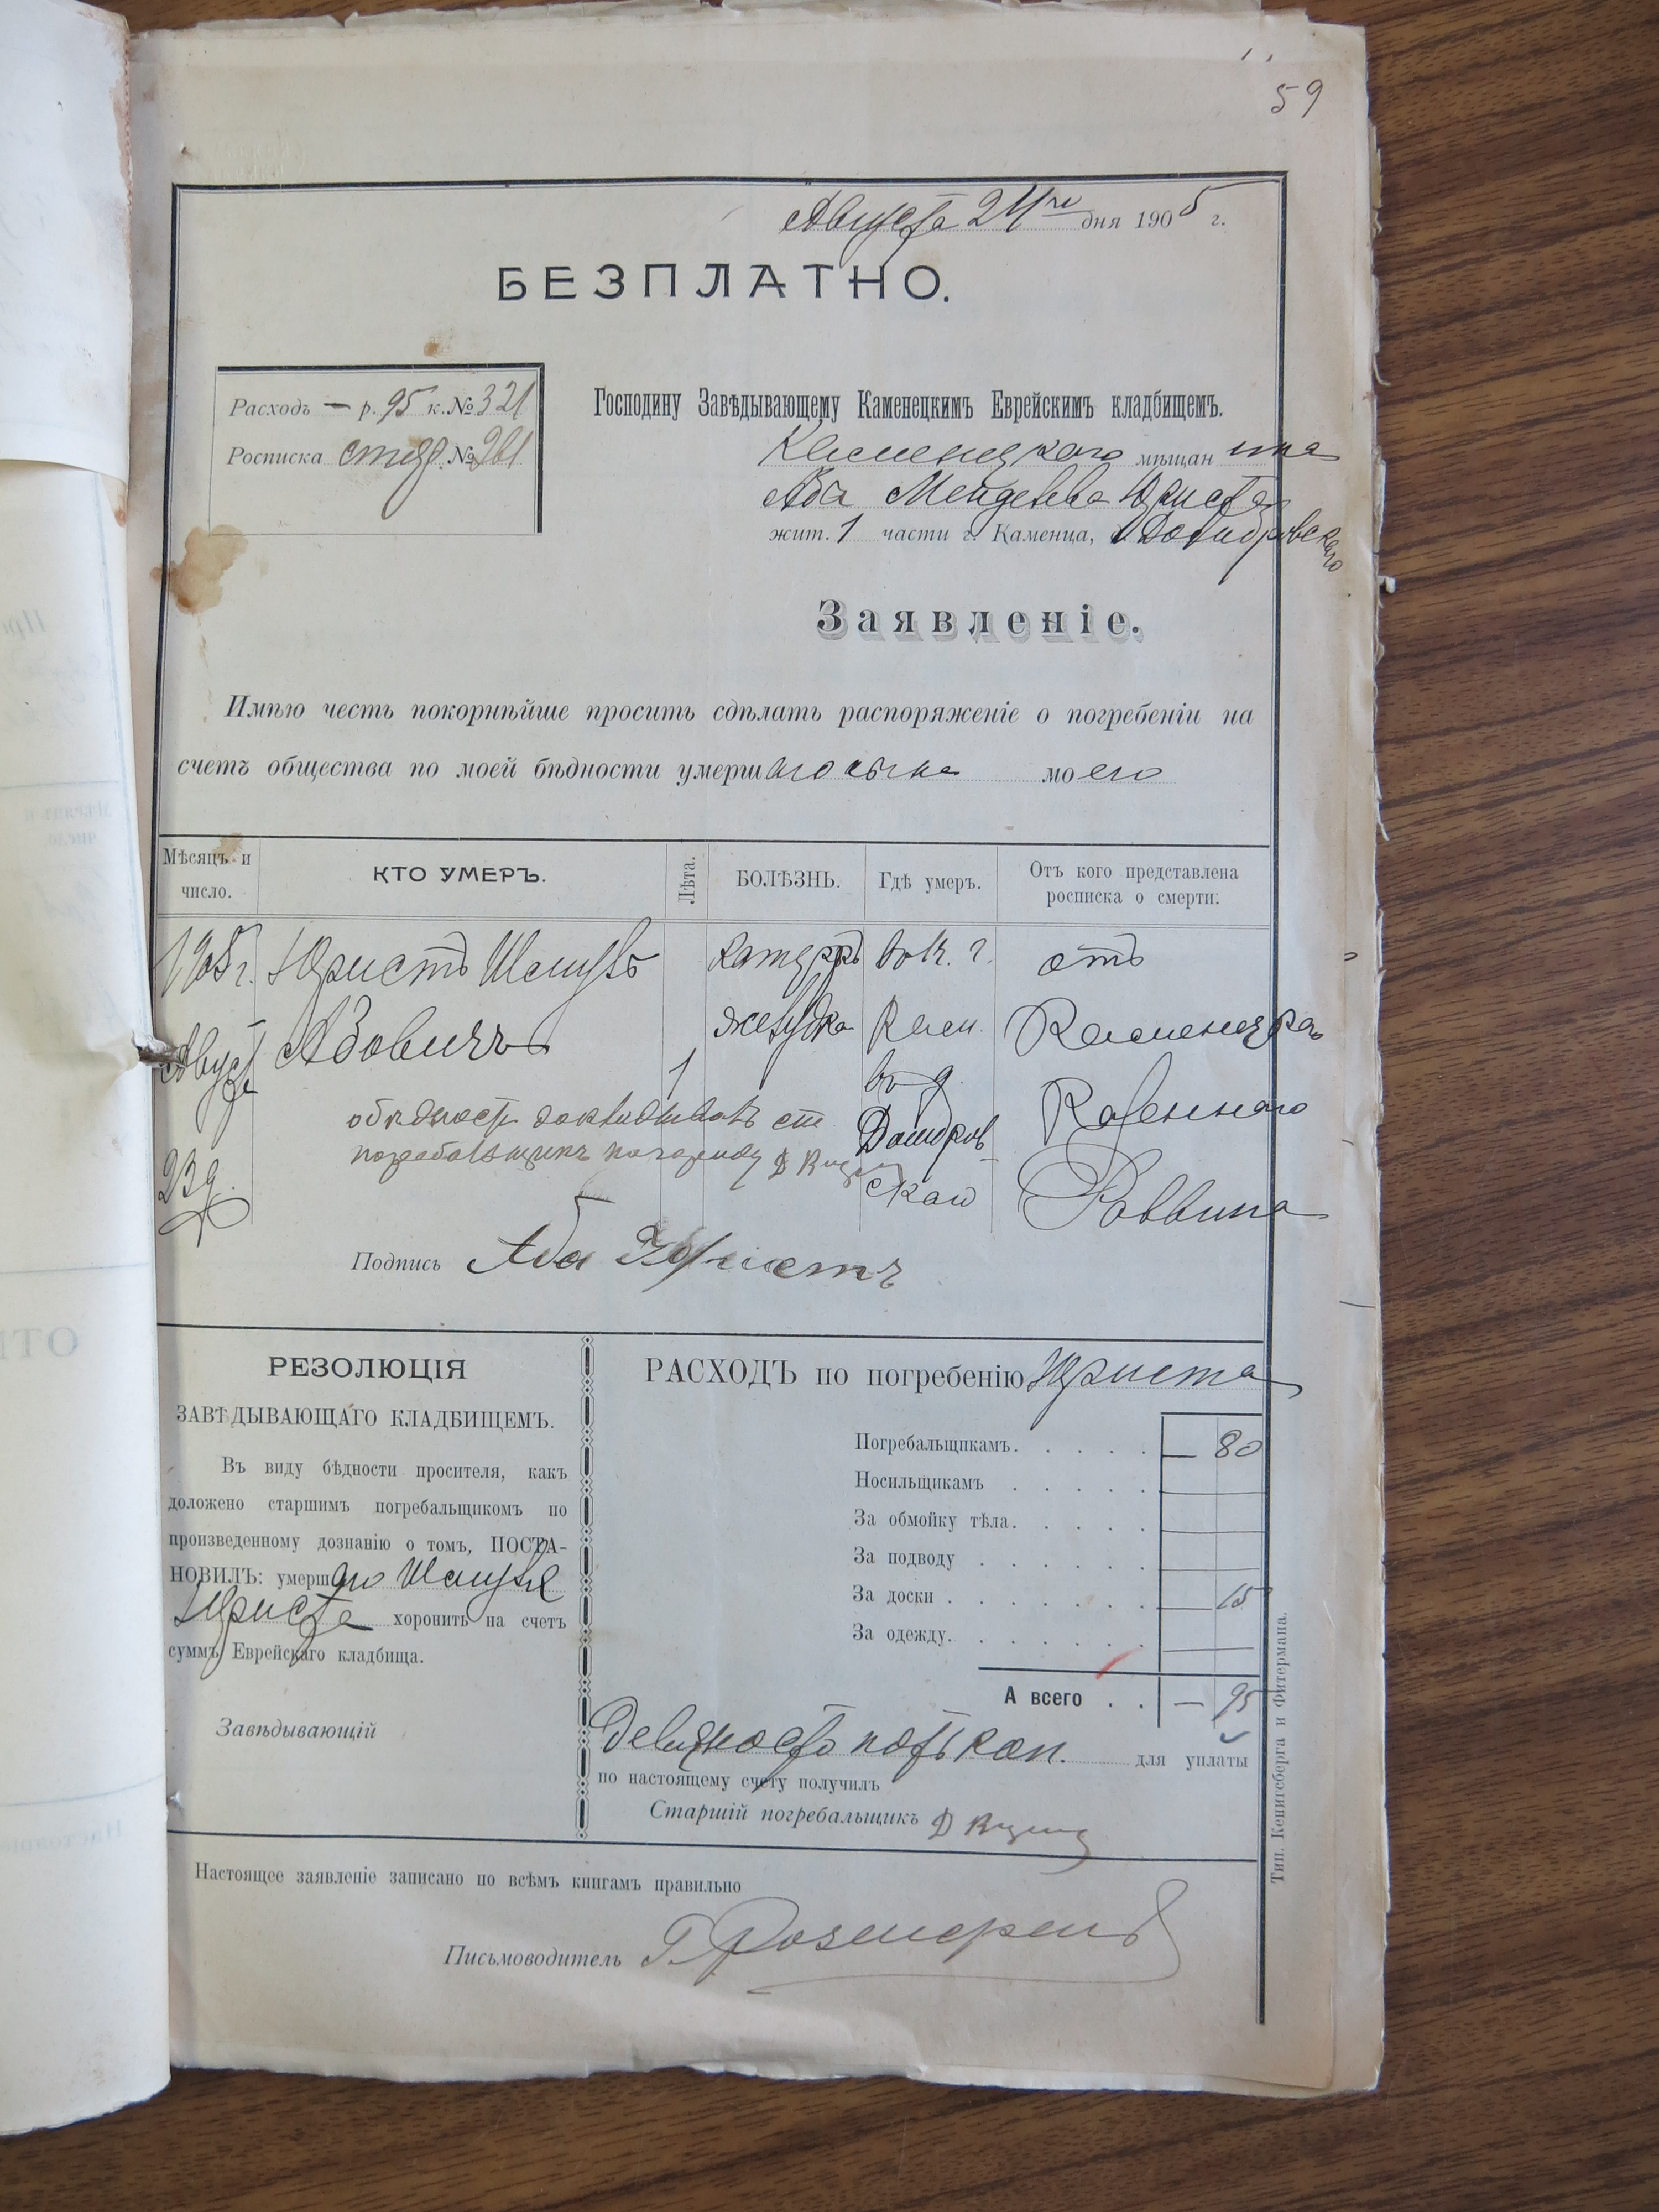 59
Августа 24го дня 1905 г.
БЕЗПЛАТНО.
Расходъ — р. 95 к. № 321
Росписка № 261
Господину Завѣдывающему Каменецкимъ Еврейскимъ кладбищемъ.
Каменецкаго мѣщанина
Аба Юриста
жит. 1 части г. Каменца,
Заявленіе.
Имѣю честь покорнѣйше просить сдѣлать распоряженіе о погребеніи на
счетъ общества по моей бѣдности умершаго сына моего
Мѣсяцъ и число. КТО УМЕРЪ. Лѣта. БОЛѢЗНЬ. Гдѣ умеръ. Отъ кого представлена росписка о смерти:
1905 г. Юристъ Шмуль катарръ въ К. г. отъ
Август Абовичъ 1 желудка Камен. Каменецкаго
въ д. Казеннаго
23 д. Раввина
Подпись Аба Юристъ
РЕЗОЛЮЦІЯ
ЗАВѢДЫВАЮЩАГО КЛАДБИЩЕМЪ.
Въ виду бѣдности просителя, какъ
доложено старшимъ погребальщикомъ по
произведенному дознанію о томъ, ПОСТА-
НОВИЛЪ: умершаго Шмуля
Юриста хоронить на счетъ
суммъ Еврейскаго кладбища.
Завѣдывающій
РАСХОДЪ по погребенію Юриста
Погребальщикамъ. — 80
Носильщикамъ
За обмойку тѣла.
За подводу
За доски 15
За одежду.
А всего — 95
Девяносто пять коп. для уплаты
по настоящему счету получилъ
Старшій погребальщикъ
Настоящее заявленіе записано по всѣмъ книгамъ правильно
Письмоводитель
Тип. Кенигсберга и Фитермана.